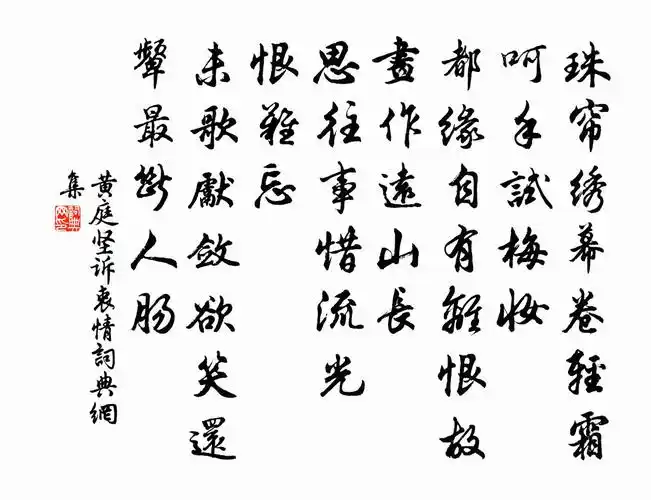 珠帘绣幕卷輕霜
呵手試梅妆
都缘自有離恨故
畫作遠山長
思往事惜流光
恨難忘
未歌獻敛欲笑還
顰最斷人肠
黄庭坚诉衷情詞典網
集